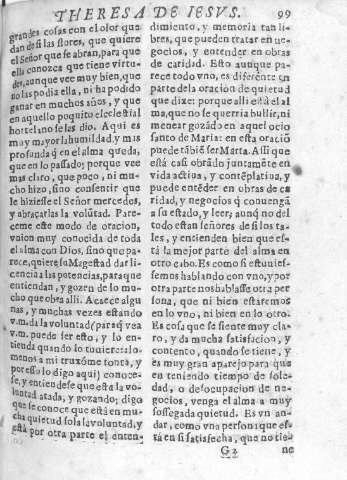 THERESA DE IESVS. 99
grandes cosas con el olor que
dan de si las flores, que quiere
el Señor que se abran, para que
ella conozca que tiene virtu-
des, aunque vee muy bien, que
no las podia ella, ni ha podido
ganar en muchos años, y que
en aquello poquito el celestial
hortelano se las dio. Aqui es
muy mayor la humildad, y mas
profunda q̃ en el alma queda,
que en lo passado; porque vee
mas claro, que poco, ni mu-
cho hizo, sino consentir que
le hiziesse el Señor mercedes,
y abraçarlas la volũtad. Pare-
ceme este modo de oracion,
vnion muy conocida de toda
el alma con Dios, sino que pa-
rece, quiere su Magestad dar li-
cencia a las potencias, para que
entiendan, y gozen de lo mu-
cho que obra alli. Acaece algu-
nas, y muchas vezes estando
vnida la voluntad (para q̃ vea
v.m. puede ser esto, y lo en-
tienda quando lo tuuiere: alo
menos a mi truxome tonta, y
por esso lo digo aqui) conoce-
se, y entiendese que està la vo-
luntad atada, y gozando; digo
que se conoce que està en mu-
cha quietud sola la voluntad, y
està por otra parte el enten-
dimiento, y memoria tan li-
bres, que pueden tratar en ne-
gocios, y entender en obras
de caridad. Esto aunque pa-
rece todo vno, es diferente en
parte de la oracion de quietud
que dixe: porque alli està el al-
ma, que no se querria bullir, ni
menear gozãdo en aquel ocio
santo de Maria: en esta oraciõ
puede tãbiẽ ser Marta. Assi que
està casi obrãdo juntamẽte en
vida actiua, y contẽplatiua, y
puede entẽder en obras de ca
ridad, y negocios q̃ conuengã
a su estado, y leer; aunq̃ no del
todo estan señores de si los ta-
les, y entienden bien que es-
tà la mejor parte del alma en
otro cabo. Es como si estuuies-
semos hablando con vno, y por
otra parte nos hablasse otra per
sona, que ni bien estaremos
en lo vno, ni bien en lo otro.
Es cosa que se siente muy cla-
ro, y da mucha satisfacion, y
contento, quando se tiene, y
es muy gran aparejo para que
en teniendo tiempo de sole-
dad, o desocupacion de ne-
gocios, venga el alma a muy
sossegada quietud. Es vn an-
dar, como vna persona que es-
tà en si satisfecha, que no tie-
G 3 ne